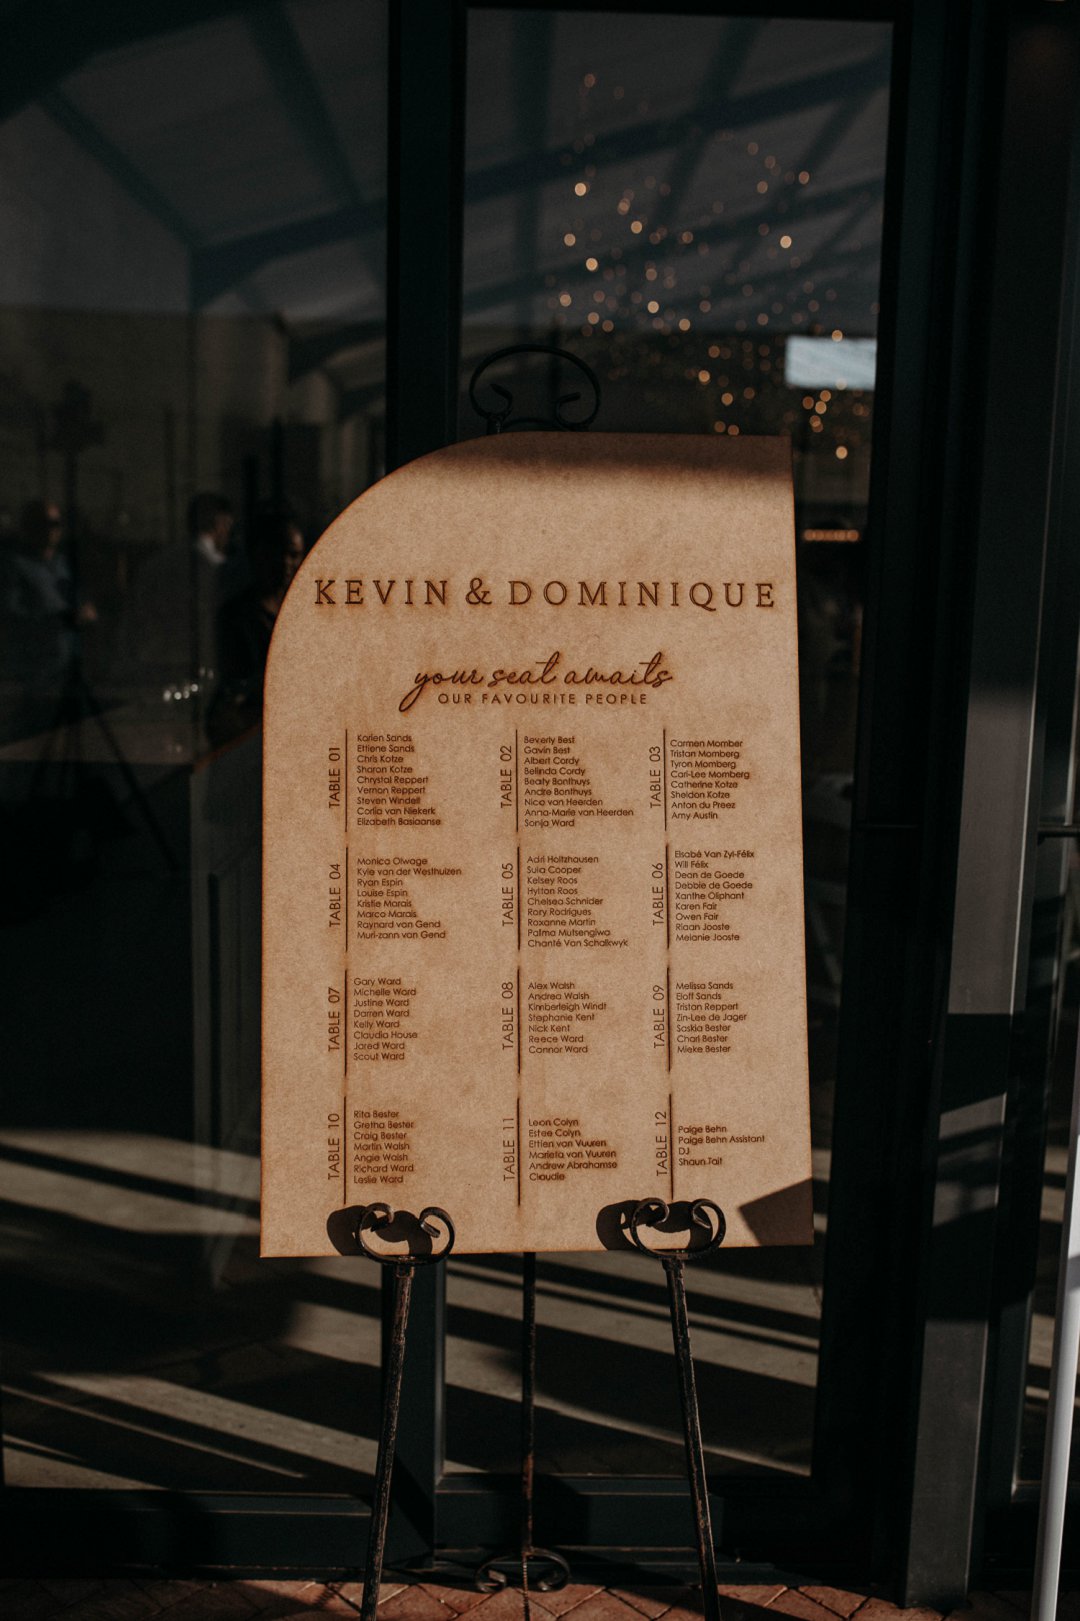 KEVIN & DOMINIQUE
your seat awaits
OUR FAVOURITE PEOPLE
TABLE 01
Karien Sands
Ettiene Sands
Chris Kotze
Sharon Kotze
Chrystal Reppert
Vernon Reppert
Steven Windell
Corlia van Niekerk
Elizabeth Basiaanse
TABLE 02
Beverly Best
Gavin Best
Albert Cordy
Belinda Cordy
Beaty Bonthuys
Andre Bonthuys
Nico van Heerden
Anna-Marie van Heerden
Sonja Ward
TABLE 03
Carmen Momber
Tristan Momberg
Tyron Momberg
Carl-Lee Momberg
Catherine Kotze
Sheldon Kotze
Anton du Preez
Amy Austin
TABLE 04
Monica Olwage
Kyle van der Westhuizen
Ryan Espin
Louise Espin
Kristie Marais
Marco Marais
Raynard van Gend
Muri-zann van Gend
TABLE 05
Adri Holtzhausen
Sula Cooper
Kelsey Roos
Hylton Roos
Chelsea Schnider
Rory Rodrigues
Roxanne Martin
Palma Mutsengiwa
Chanté Van Schalkwyk
TABLE 06
Elsabé Van Zyl-Félix
Will Félix
Dean de Goede
Debbie de Goede
Xanthe Oliphant
Karen Fair
Owen Fair
Riaan Jooste
Melanie Jooste
TABLE 07
Gary Ward
Michelle Ward
Justine Ward
Darren Ward
Kelly Ward
Claudia House
Jared Ward
Scout Ward
TABLE 08
Alex Walsh
Andrea Walsh
Kimberleigh Windt
Stephanie Kent
Nick Kent
Reece Ward
Connor Ward
TABLE 09
Melissa Sands
Eloff Sands
Tristan Reppert
Zin-Lee de Jager
Saskia Bester
Charl Bester
Mieke Bester
TABLE 10
Rita Bester
Gretha Bester
Craig Bester
Martin Walsh
Angie Walsh
Richard Ward
Leslie Ward
TABLE 11
Leon Colyn
Estee Colyn
Ettien van Vuuren
Marieta van Vuuren
Andrew Abrahamse
Claudie
TABLE 12
Paige Behn
Paige Behn Assistant
DJ
Shaun Tait